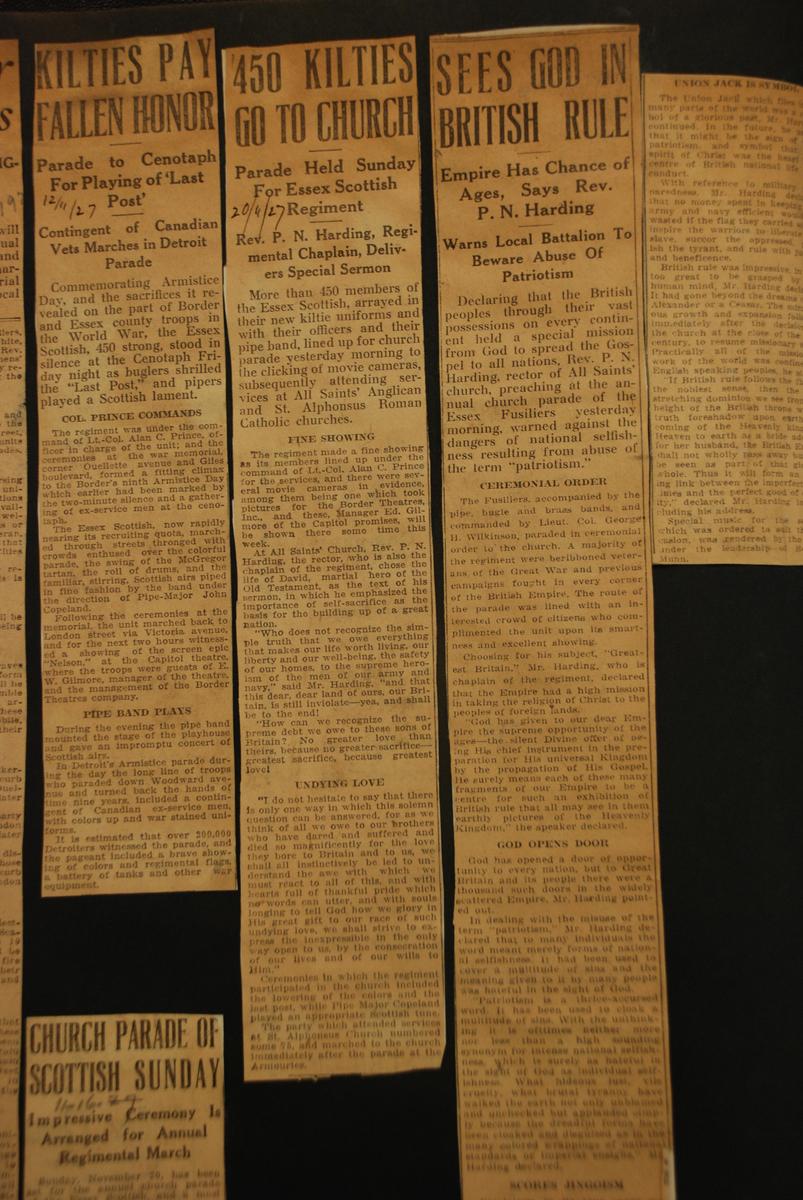 KILTIES PAY
FALLEN HONOR
Parade to Cenotaph
For Playing of 'Last
Post'
12/11/27
Contingent of Canadian
Vets Marches in Detroit
Parade
Commemorating Armistice
Day, and the sacrifices it re-
vealed on the part of Border
and Essex county troops in
the World War, the Essex
Scottish, 450 strong, stood in
silence at the Cenotaph Fri-
day night as buglers shrilled
the "Last Post," and pipers
played a Scottish lament.
COL. PRINCE COMMANDS
The regiment was under the com-
mand of Lt.-Col. Alan C. Prince, of-
ficer in charge of the unit; and the
ceremonies at the war memorial,
corner Ouellette avenue and Giles
boulevard, formed a fitting climax
to the Border's ninth Armistice Day
which earlier had been marked by
the two-minute silence and a gather-
ing of ex-service men at the ceno-
taph.
The Essex Scottish, now rapidly
nearing its recruiting quota, march-
ed through streets thronged with
crowds enthused over the colorful
parade, the swing of the McGregor
tartan, the roll of drums, and the
familiar, stirring, Scottish airs piped
in fine fashion by the band under
the direction of Pipe-Major John
Copeland.
Following the ceremonies at the
memorial, the unit marched back to
London street via Victoria avenue,
and for the next two hours witness-
ed a showing of the screen epic
"Nelson," at the Capitol theatre,
where the troops were guests of E.
W. Gilmore, manager of the theatre,
and the management of the Border
Theatres company.
PIPE BAND PLAYS
During the evening the pipe band
mounted the stage of the playhouse
and gave an impromptu concert of
Scottish airs.
In Detroit's Armistice parade dur-
ing the day the long line of troops
who paraded down Woodward ave-
nue and turned back the hands of
time nine years, included a contin-
gent of Canadian ex-service men,
with colors up and war stained uni-
forms.
It is estimated that over 200,000
Detroiters witnessed the parade, and
the pageant included a brave show-
ing of colors and regimental flags,
a battery of tanks and other war
equipment.
CHURCH PARADE OF
SCOTTISH SUNDAY
Impressive Ceremony Is
Arranged for Annual
Regimental March
Sunday, November 20, has been
set for the annual church parade
450 KILTIES
GO TO CHURCH
Parade Held Sunday
For Essex Scottish
Regiment
20/4/27
Rev. P. N. Harding, Regi-
mental Chaplain, Deliv-
ers Special Sermon
More than 450 members of
the Essex Scottish, arrayed in
their new kiltie uniforms and
with their officers and their
pipe band, lined up for church
parade yesterday morning to
the clicking of movie cameras,
subsequently attending ser-
vices at All Saints' Anglican
and St. Alphonsus Roman
Catholic churches.
FINE SHOWING
The regiment made a fine showing
as its members lined up under the
command of Lt.-Col. Alan C. Prince
for the services, and there were sev-
eral movie cameras in evidence,
among them being one which took
pictures for the Border Theatres,
Inc., and these, Manager Ed. Gil-
more of the Capitol promises, will
be shown there some time this
week.
At All Saints' Church, Rev. P. N.
Harding, the rector, who is also the
chaplain of the regiment, chose the
life of David, martial hero of the
Old Testament, as the text of his
sermon, in which he emphasized the
importance of self-sacrifice as the
basis for the building up of a great
nation.
"Who does not recognize the sim-
ple truth that we owe everything
that makes our life worth living, our
liberty and our well-being, the safety
of our homes, to the supreme hero-
ism of the men of our army and
navy," said Mr. Harding, "and that
this dear, dear land of ours, our Bri-
tain, is still inviolate—yea, and shall
be to the end!
"How can we recognize the su-
preme debt we owe to these sons of
Britain? No greater love than
theirs, because no greater sacrifice—
greatest sacrifice, because greatest
love!
UNDYING LOVE
"I do not hesitate to say that there
is only one way in which this solemn
question can be answered, for as we
think of all we owe to our brothers
who have dared and suffered and
died so magnificently for the love
they bore to Britain and to us, we
shall all instinctively be led to un-
derstand the awe with which we
must react to all of this, and with
hearts full of thankful pride which
no words can utter, and with souls
longing to tell God how we glory in
His great gift to our race of such
undying love, we shall strive to ex-
press the inexpressible in the only
way open to us, by the consecration
of our lives and of our wills to
Him."
Ceremonies in which the regiment
participated in the church included
the lowering of the colors and the
last post, while Pipe Major Copeland
played an appropriate Scottish tune.
The party which attended services
at St. Alphonsus Church numbered
some 75, and marched to the church
immediately after the parade at the
Armouries.
SEES GOD IN
BRITISH RULE
Empire Has Chance of
Ages, Says Rev.
P. N. Harding
Warns Local Battalion To
Beware Abuse Of
Patriotism
Declaring that the British
peoples through their vast
possessions on every contin-
ent held a special mission
from God to spread the Gos-
pel to all nations, Rev. P. N.
Harding, rector of All Saints'
church, preaching at the an-
nual church parade of the
Essex Fusiliers yesterday
morning, warned against the
dangers of national selfish-
ness resulting from abuse of
the term "patriotism."
CEREMONIAL ORDER
The Fusiliers, accompanied by the
pipe, bugle and brass bands, and
commanded by Lieut. Col. George
H. Wilkinson, paraded in ceremonial
order to the church. A majority of
the regiment were beribboned veter-
ans of the Great War and previous
campaigns fought in every corner
of the British Empire. The route of
the parade was lined with an in-
terested crowd of citizens who com-
plimented the unit upon its smart-
ness and excellent showing.
Choosing for his subject, "Great-
est Britain," Mr. Harding, who is
chaplain of the regiment, declared
that the Empire had a high mission
in taking the religion of Christ to the
peoples of foreign lands.
"God has given to our dear Em-
pire the supreme opportunity of the
ages—the silent Divine offer of be-
ing His chief instrument in the pre-
paration for His universal Kingdom
by the propagation of His Gospel.
He surely means each of these many
fragments of our Empire to be a
centre for such an exhibition of
British rule that all may see in them
earthly pictures of the Heavenly
Kingdom," the speaker declared.
GOD OPENS DOOR
God has opened a door of oppor-
tunity to every nation, but to Great
Britain and its people there were a
thousand such doors in the widely
scattered Empire, Mr. Harding point-
ed out.
In dealing with the misuse of the
term "patriotism," Mr. Harding de-
clared that to many individuals the
word meant merely forms of nation-
al selfishness. It had been used to
cover a multitude of sins and the
meaning given to it by many people
was hateful in the sight of God.
"Patriotism is a thrice-accursed
word. It has been used to cloak a
multitude of sins. With the unthink-
ing it is ofttimes neither more
nor less than a high sounding
synonym for intense national selfish-
ness, which is surely as hateful in
the sight of God as individual self-
ishness. What hideous lust, vile
cruelty, what brutal tyranny have
walked the earth not only unblamed
and unchecked but applauded simp-
ly because the dreadful forms have
been cloaked and disguised as in the
many colored wrappings of national
standards or imperial ensigns," Mr.
Harding declared.
SCORES JINGOISM
UNION JACK IS SYMBOL
The Union Jack which flies
many parts of the world was a
bol of a glorious past, Mr. Har
continued. In the future, he
that it might be the sign of
patriotism, and symbol that
spirit of Christ was the heart
centre of British national life
conduct.
With reference to military
paredness, Mr. Harding dec
that no money spent in keeping
army and navy efficient would
wasted if the flag they carried
inspire the warriors to liberate
slave, succor the oppressed,
ish the tyrant, and rule with
and beneficence.
British rule was impressive in
too great to be grasped by
human mind, Mr. Harding decl
It had gone beyond the dreams
Alexander or a Caesar. The
ous growth and expansion
immediately after the decision
the church at the close of the
century, to resume missionary
Practically all of the mission
work of the world was confined
English speaking peoples, he s
"If British rule follows the
the noblest sense, then the
stretching dominion we see from
height of the British throne
truth foreshadow upon earth
coming of the Heavenly king
Heaven to earth as a bride ad
for her husband, the British E
shall not wholly pass away but
be seen as part of that
whole. Thus it will form an
ing link between the imperfect
times and the perfect good of
ity," declared Mr. Harding in
cluding his address.
Special music for the
which was ordered to suit the
casion, was rendered by the
under the leadership of
Munn.